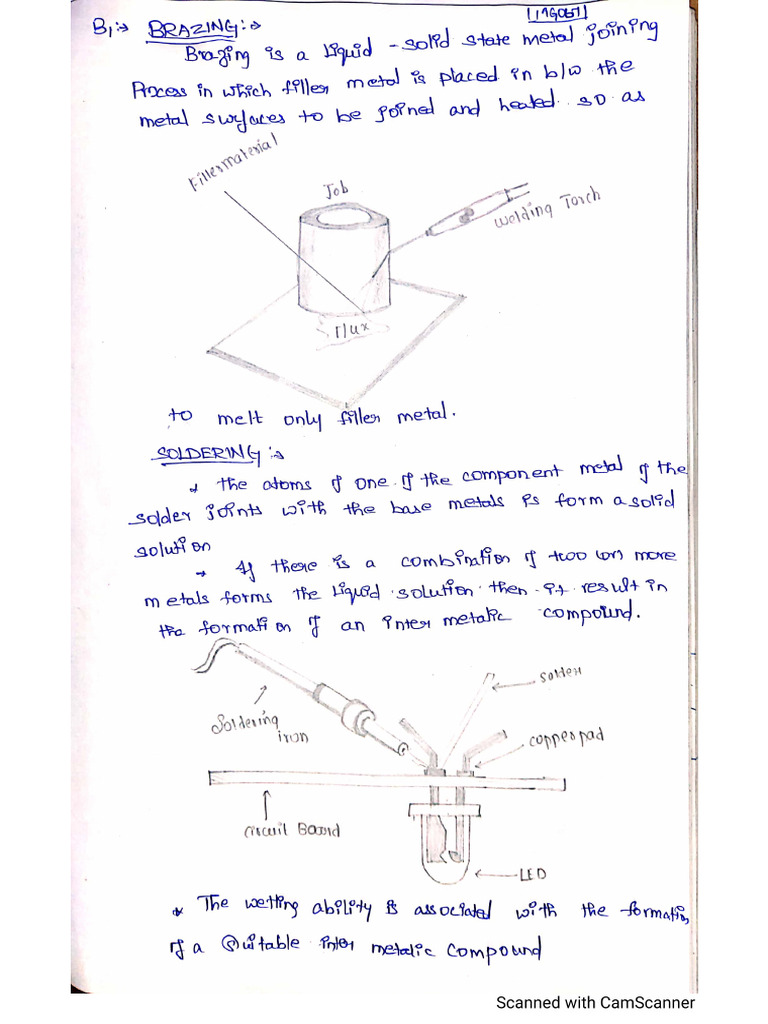 17G051
B₁:→ BRAZING:→
Brazing is a Liquid - solid state metal joining
Process in which filler metal is placed in b/w the
metal surfaces to be joined and heated so as
Filler material
Job
Welding Torch
Flux
to melt only filler metal.
SOLDERING:→
→ the atoms of one of the component metal of the
solder joints with the base metals is form a solid
solution
→ If there is a combination of two (or) more
metals forms the liquid solution then it result in
the formation of an inter metalic compound.
Solder
Soldering
iron
copper pad
circuit Board
LED
* The wetting ability is associated with the formation
of a Suitable inter metalic compound
Scanned with CamScanner